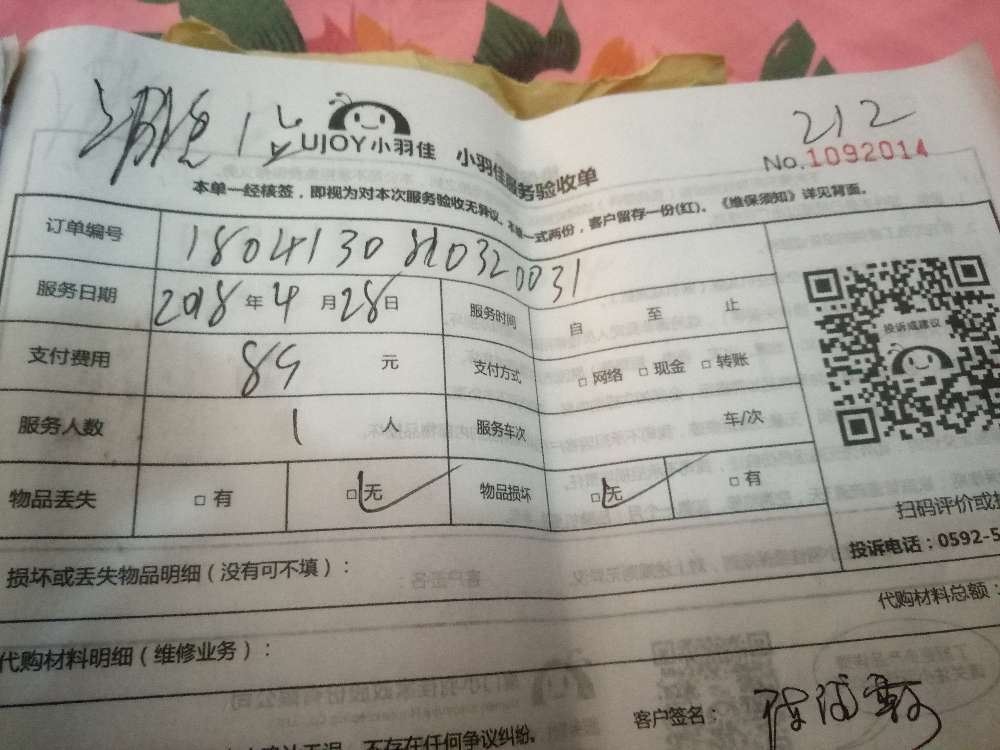 212
UJOY 小羽佳 小羽佳服务验收单
No.1092014
本单一经核签，即视为对本次服务验收无异议。本单一式两份，客户留存一份(红)。《维保须知》详见背面。
订单编号 1804130810320031
服务日期 2018年4月28日 服务时间 自 至 止
投诉或建议
支付费用 89 元 支付方式 □网络 □现金 □转账
服务人数 1 人 服务车次 车/次
物品丢失 □有 □无 物品损坏 □无 □有
扫码评价或
投诉电话：0592-5
损坏或丢失物品明细（没有可不填）：
代购材料总额：
代购材料明细（维修业务）：
客户签名：
不存在任何争议纠纷。